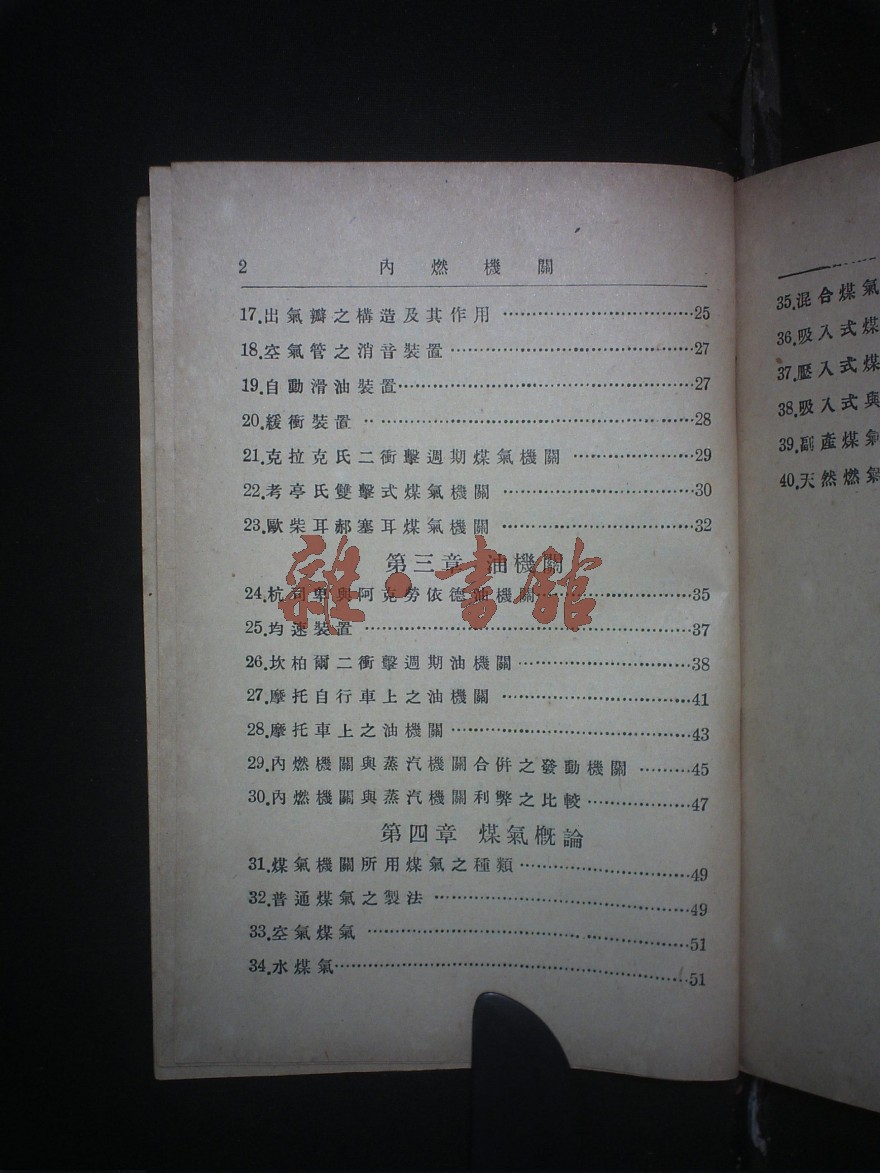 2 內燃機關
17.出氣瓣之構造及其作用 ……25
18.空氣管之消音裝置 ……27
19.自動滑油裝置……27
20.緩衝裝置 ……28
21.克拉克氏二衝擊週期煤氣機關 ……29
22.考亭氏雙擊式煤氣機關 ……30
23.歐柴耳郝塞耳煤氣機關 ……32
第三章 油機關
24.杭司卑與阿克勞依德油機關……35
25.均速裝置 ……37
26.坎柏爾二衝擊週期油機關……38
27.摩托自行車上之油機關 ……41
28.摩托車上之油機關 ……43
29.內燃機關與蒸汽機關合併之發動機關 ……45
30.內燃機關與蒸汽機關利弊之比較……47
第四章 煤氣槪論
31.煤氣機關所用煤氣之種類……49
32.普通煤氣之製法 ……49
33.空氣煤氣 ……51
34.水煤氣……51
雜·書館
35.混合煤氣
36.吸入式煤
37.壓入式煤
38.吸入式與
39.副產煤氣
40.天然燃氣